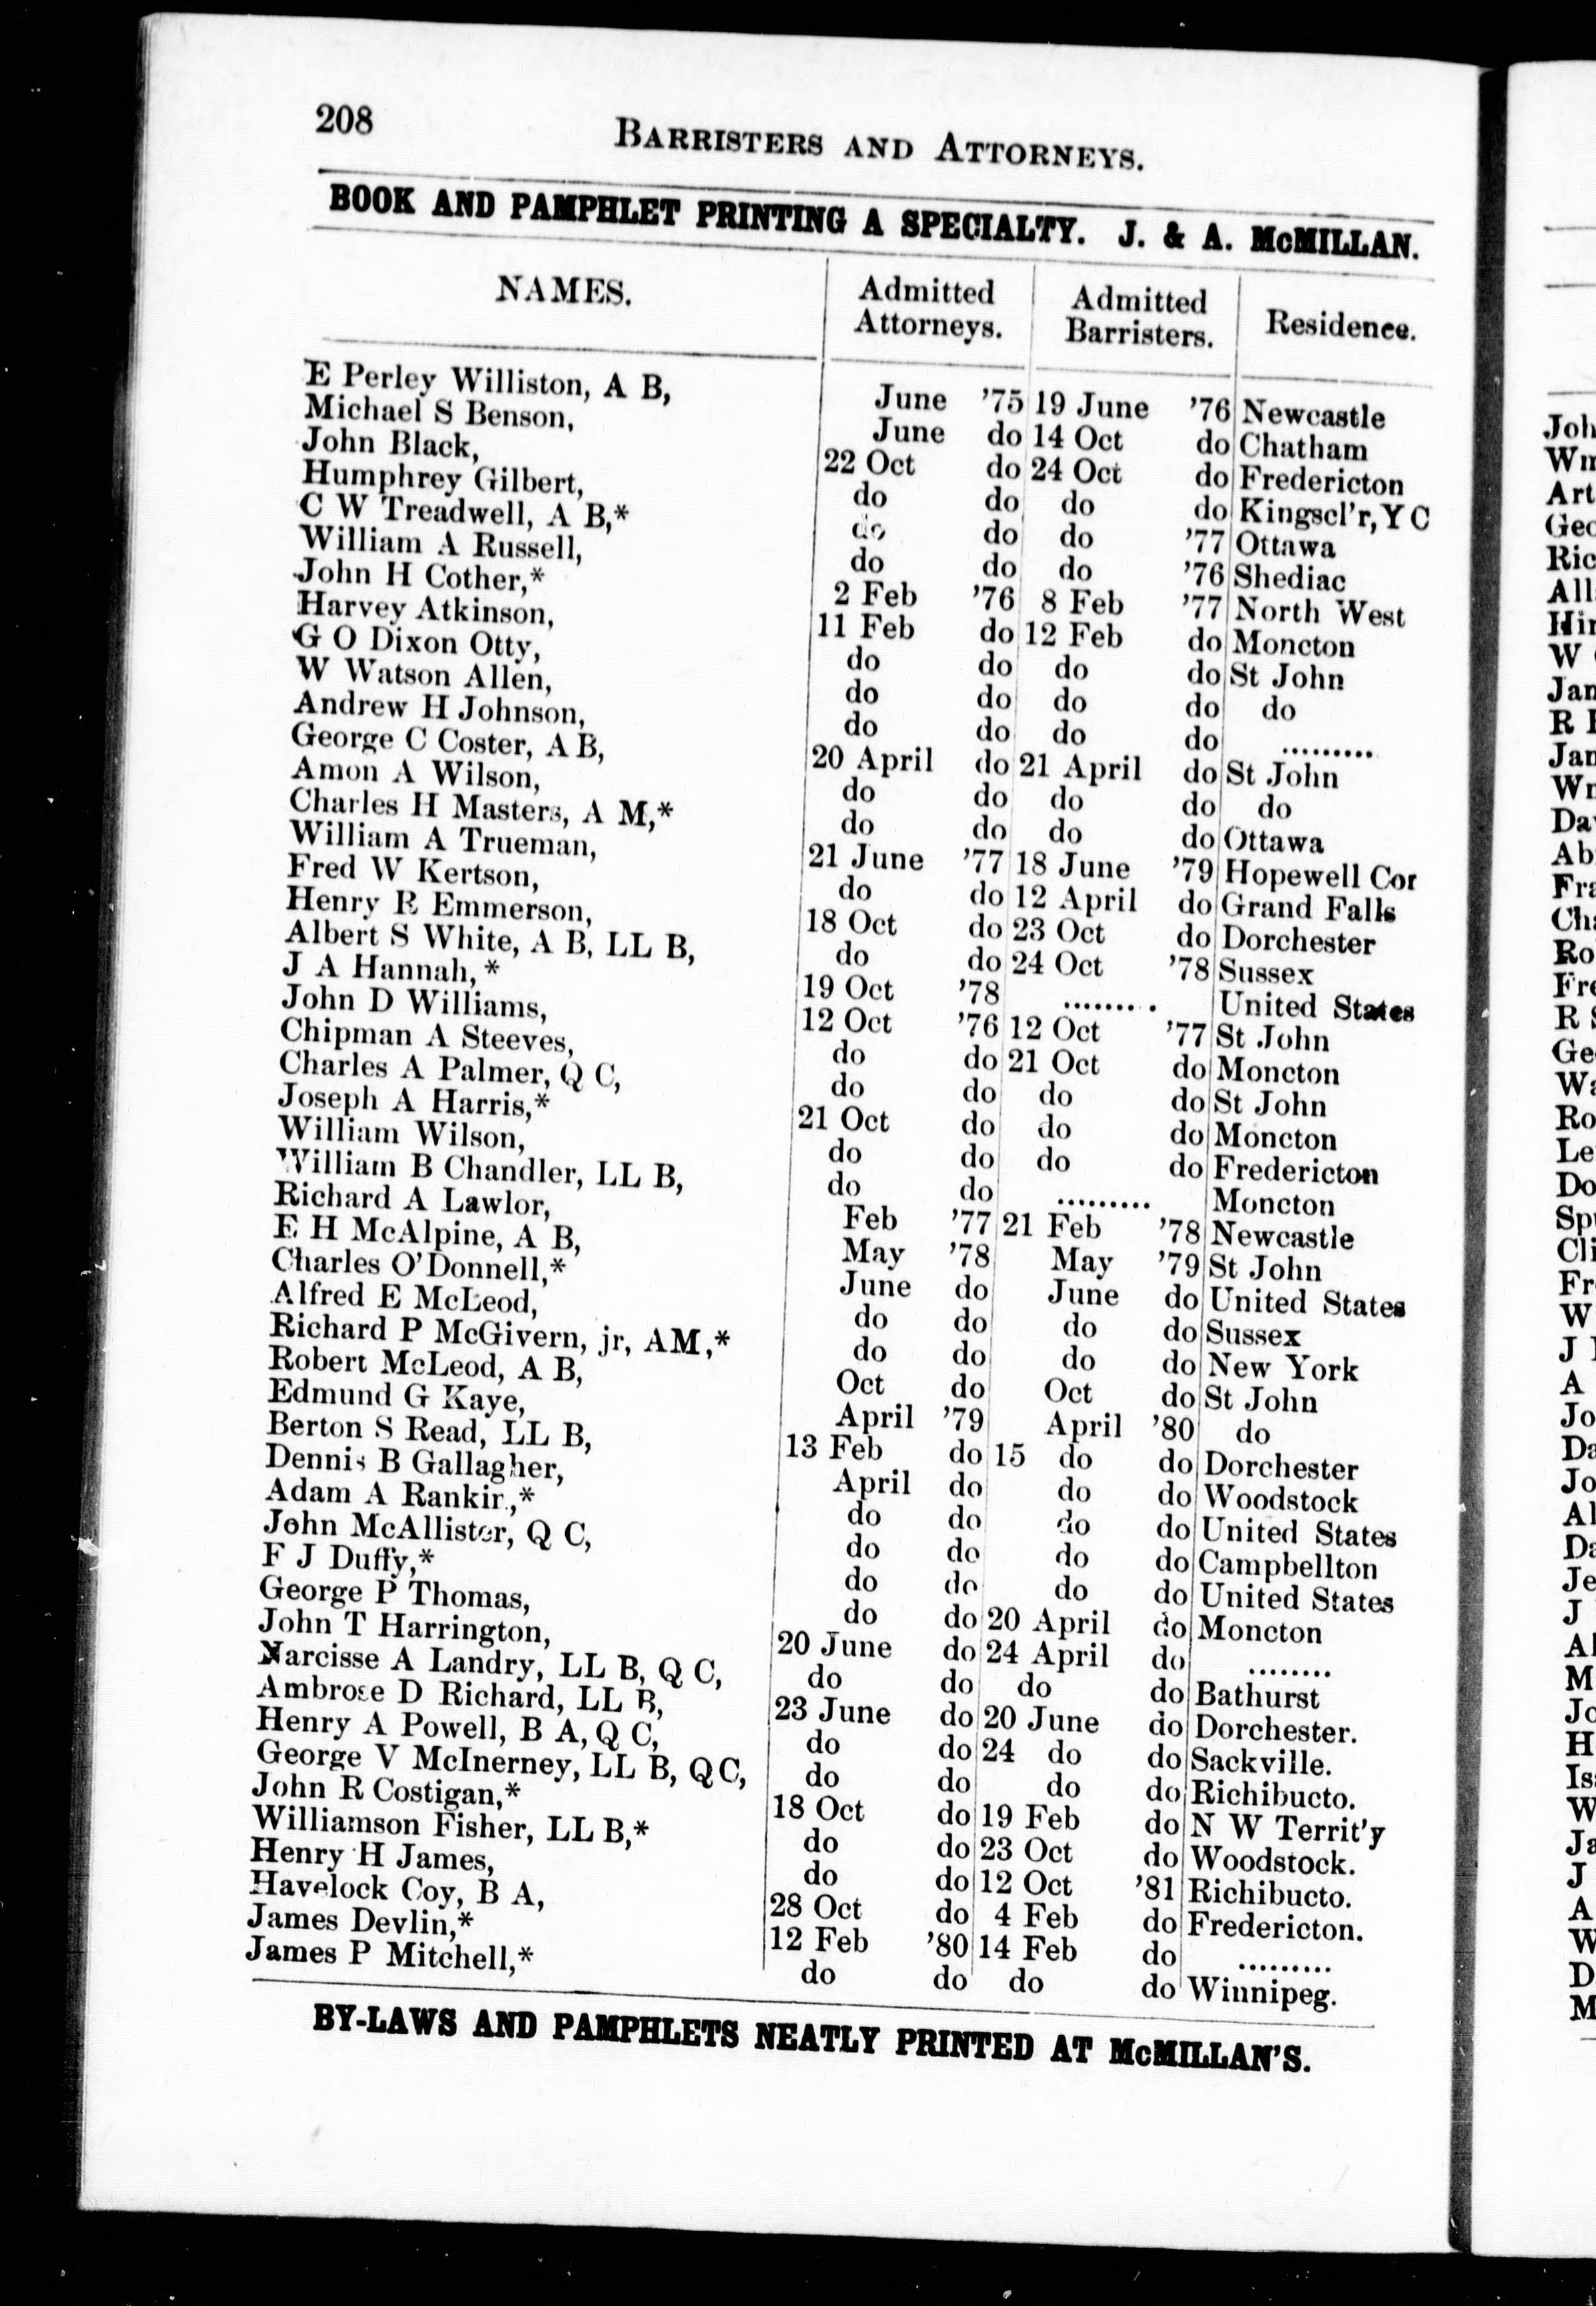 208 BARRISTERS AND ATTORNEYS.
BOOK AND PAMPHLET PRINTING A SPECIALTY. J. & A. McMILLAN.
NAMES. Admitted Attorneys. Admitted Barristers. Residence.
E Perley Williston, A B, June '75 19 June '76 Newcastle
Michael S Benson, June do 14 Oct do Chatham
John Black, 22 Oct do 24 Oct do Fredericton
Humphrey Gilbert, do do do do Kingscl'r, Y C
C W Treadwell, A B,* do do do '77 Ottawa
William A Russell, do do do '76 Shediac
John H Cother,* 2 Feb '76 8 Feb '77 North West
Harvey Atkinson, 11 Feb do 12 Feb do Moncton
G O Dixon Otty, do do do do St John
W Watson Allen, do do do do do
Andrew H Johnson, do do do do .........
George C Coster, A B, 20 April do 21 April do St John
Amon A Wilson, do do do do do
Charles H Masters, A M,* do do do do Ottawa
William A Trueman, 21 June '77 18 June '79 Hopewell Cor
Fred W Kertson, do do 12 April do Grand Falls
Henry R Emmerson, 18 Oct do 23 Oct do Dorchester
Albert S White, A B, LL B, do do 24 Oct '78 Sussex
J A Hannah,* 19 Oct '78 ......... United States
John D Williams, 12 Oct '76 12 Oct '77 St John
Chipman A Steeves, do do 21 Oct do Moncton
Charles A Palmer, Q C, do do do do St John
Joseph A Harris,* 21 Oct do do do Moncton
William Wilson, do do do do Fredericton
William B Chandler, LL B, do do ......... Moncton
Richard A Lawlor, Feb '77 21 Feb '78 Newcastle
E H McAlpine, A B, May '78 May '79 St John
Charles O'Donnell,* June do June do United States
Alfred E McLeod, do do do do Sussex
Richard P McGivern, jr, A M,* do do do do New York
Robert McLeod, A B, Oct do Oct do St John
Edmund G Kaye, April '79 April '80 do
Berton S Read, LL B, 13 Feb do 15 do do Dorchester
Dennis B Gallagher, April do do do Woodstock
Adam A Rankin,* do do do do United States
John McAllister, Q C, do do do do Campbellton
F J Duffy,* do do do do United States
George P Thomas, do do 20 April do Moncton
John T Harrington, 20 June do 24 April do ........
Narcisse A Landry, LL B, Q C, do do do do Bathurst
Ambrose D Richard, LL B, 23 June do 20 June do Dorchester.
Henry A Powell, B A, Q C, do do 24 do do Sackville.
George V McInerney, LL B, Q C, do do do do Richibucto.
John R Costigan,* 18 Oct do 19 Feb do N W Territ'y
Williamson Fisher, LL B,* do do 23 Oct do Woodstock.
Henry H James, do do 12 Oct '81 Richibucto.
Havelock Coy, B A, 28 Oct do 4 Feb do Fredericton.
James Devlin,* 12 Feb '80 14 Feb do .........
James P Mitchell,* do do do do Winnipeg.
BY-LAWS AND PAMPHLETS NEATLY PRINTED AT McMILLAN'S.